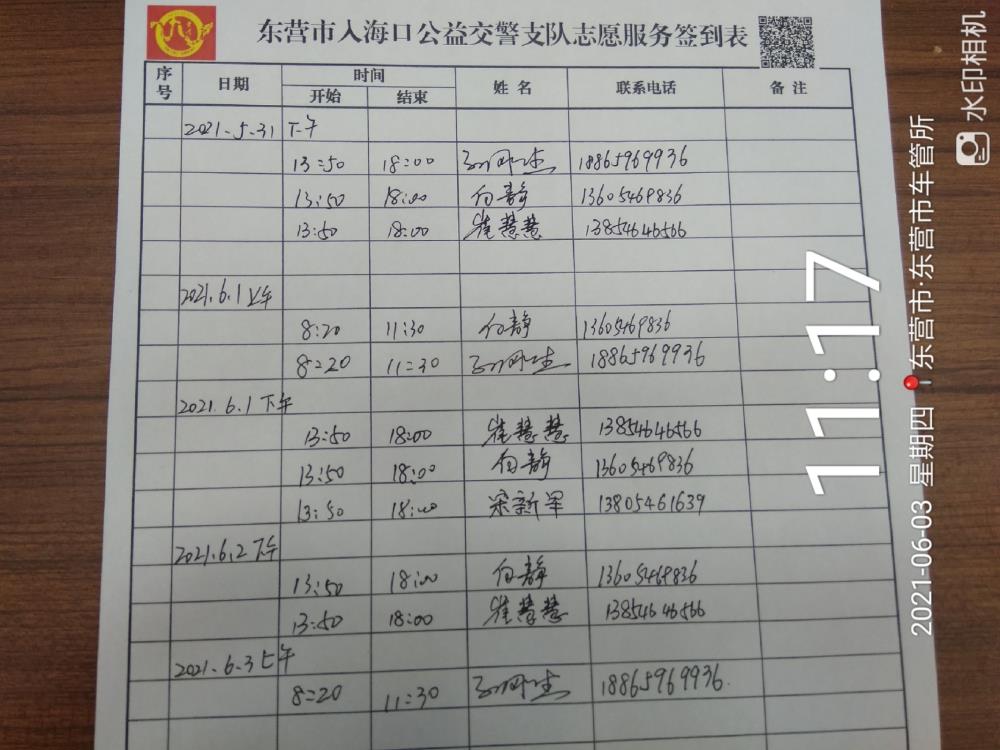 东营市入海口公益交警支队志愿服务签到表
序号 日期 时间 姓名 联系电话 备注
开始 结束
2021.5.31 下午
13:50 18:00 18865969936
13:50 18:00 白静 13605469836
13:50 18:00 崔慧慧 13854646566
2021.6.1 上午
8:20 11:30 白静 13605469836
8:20 11:30 18865969936
2021.6.1 下午
13:50 18:00 崔慧慧 13854646566
13:50 18:00 白静 13605469836
13:50 18:00 宋新军 13805461639
2021.6.2 下午
13:50 18:00 白静 13605469836
13:50 18:00 崔慧慧 13854646566
2021.6.3 上午
8:20 11:30 18865969936
水印相机
11:17
2021-06-03 星期四 东营市·东营市车管所